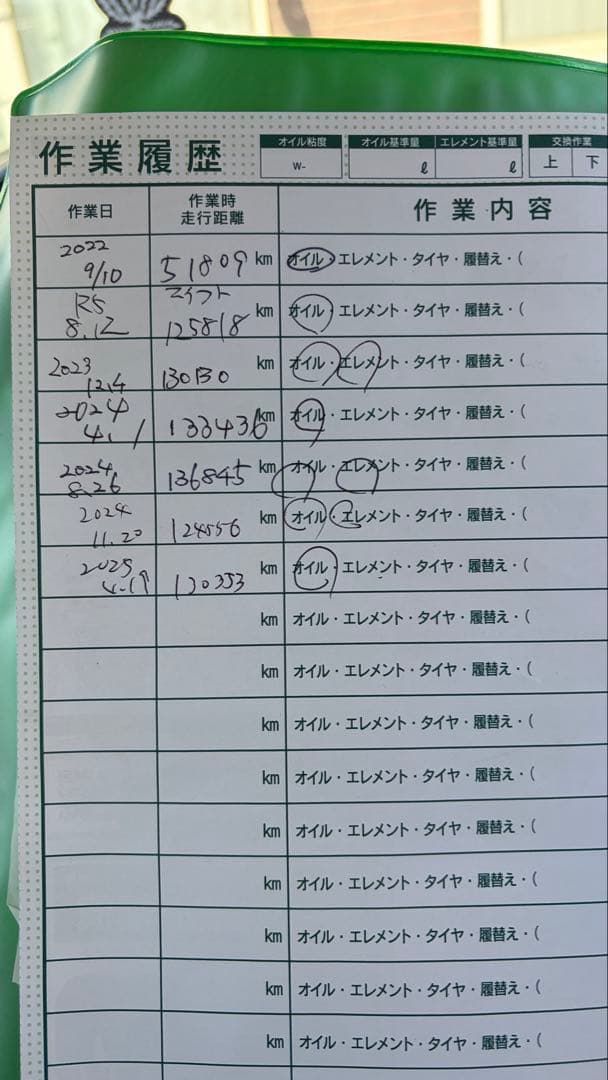 作業履歴
オイル粘度 オイル基準量 エレメント基準量 交換作業
W- ℓ ℓ 上 下
作業日 作業時走行距離 作業内容
2022 9/10 51809 km オイル・エレメント・タイヤ・履替え・(
R5 8.12 スイフト 125818 km オイル・エレメント・タイヤ・履替え・(
2023 12.4 130130 km オイル・エレメント・タイヤ・履替え・(
2024 4.1 133436 km オイル・エレメント・タイヤ・履替え・(
2024 8.26 136845 km オイル・エレメント・タイヤ・履替え・(
2024 11.20 124556 km オイル・エレメント・タイヤ・履替え・(
2025 4.19 120353 km オイル・エレメント・タイヤ・履替え・(
km オイル・エレメント・タイヤ・履替え・(
km オイル・エレメント・タイヤ・履替え・(
km オイル・エレメント・タイヤ・履替え・(
km オイル・エレメント・タイヤ・履替え・(
km オイル・エレメント・タイヤ・履替え・(
km オイル・エレメント・タイヤ・履替え・(
km オイル・エレメント・タイヤ・履替え・(
km オイル・エレメント・タイヤ・履替え・(
km オイル・エレメント・タイヤ・履替え・(